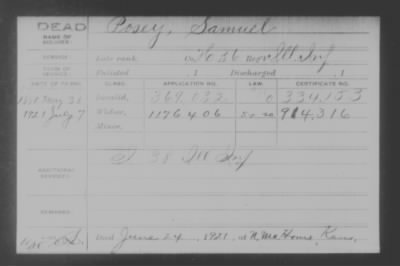 DEAD
NAME OF SOLDIER:
Posey, Samuel
SERVICE:
Late rank, Co. H 36 Reg't Ill Inf
TERM OF SERVICE:
Enlisted , 1 Discharged , 1
DATE OF FILING. CLASS. APPLICATION NO. LAW. CERTIFICATE NO.
May 31 Invalid, 369,133 334,153
1921 July 7 Widow, 1176406 914,316
Minor,
ADDITIONAL SERVICES:
38 Ill Inf
REMARKS:
Died June 24, 1921, at N. Mil Home, Kans.